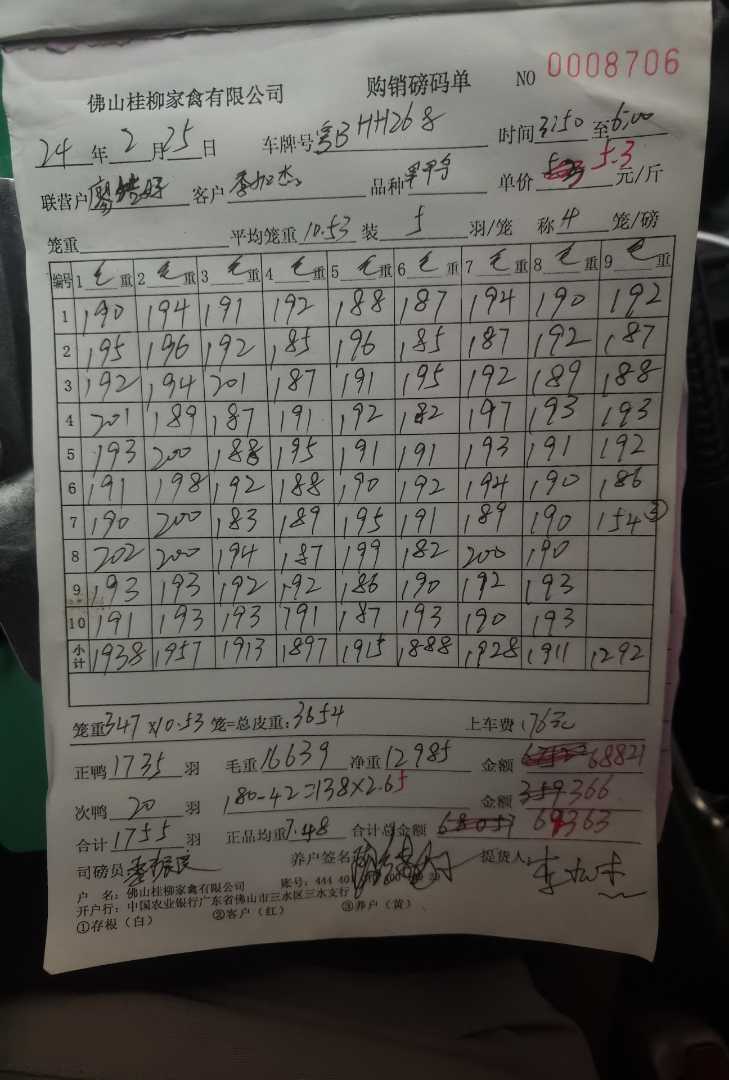 佛山桂柳家禽有限公司 购销磅码单 NO 0008706
24年2月25日 车牌号 粤BHH268 时间3:50至6:00
联营户 客户 季加杰 品种 单价 5.3 元/斤
笼重 平均笼重10.53 装5羽/笼 称4笼/磅
编号 1毛重 2毛重 3毛重 4毛重 5毛重 6毛重 7毛重 8毛重 9毛重
1 190 194 191 192 188 187 194 190 192
2 195 196 192 185 196 185 187 192 187
3 192 194 201 187 191 195 192 189 188
4 201 189 187 191 192 182 197 193 193
5 193 200 188 195 191 191 193 191 192
6 191 198 192 188 190 192 194 190 186
7 190 200 183 189 195 191 189 190 154③
8 202 200 194 187 199 182 200 190
9 193 193 192 192 186 190 192 193
10 191 193 193 191 187 193 190 193
小计 1938 1957 1913 1897 1915 1888 1928 1911 1292
笼重347×10.53 笼=总皮重:3654 上车费(76元
正鸭1735羽 毛重16639 净重12985 金额 68821
次鸭20羽 180-42=138×2.65 金额 366
合计1755羽 正品均重7.48 合计总金额 69363
司磅员 养户签名 提货人:
户 名:佛山桂柳家禽有限公司 账号:444 40
开户行:中国农业银行广东省佛山市三水区三水支行
①存根(白) ②客户(红) ③养户(黄)